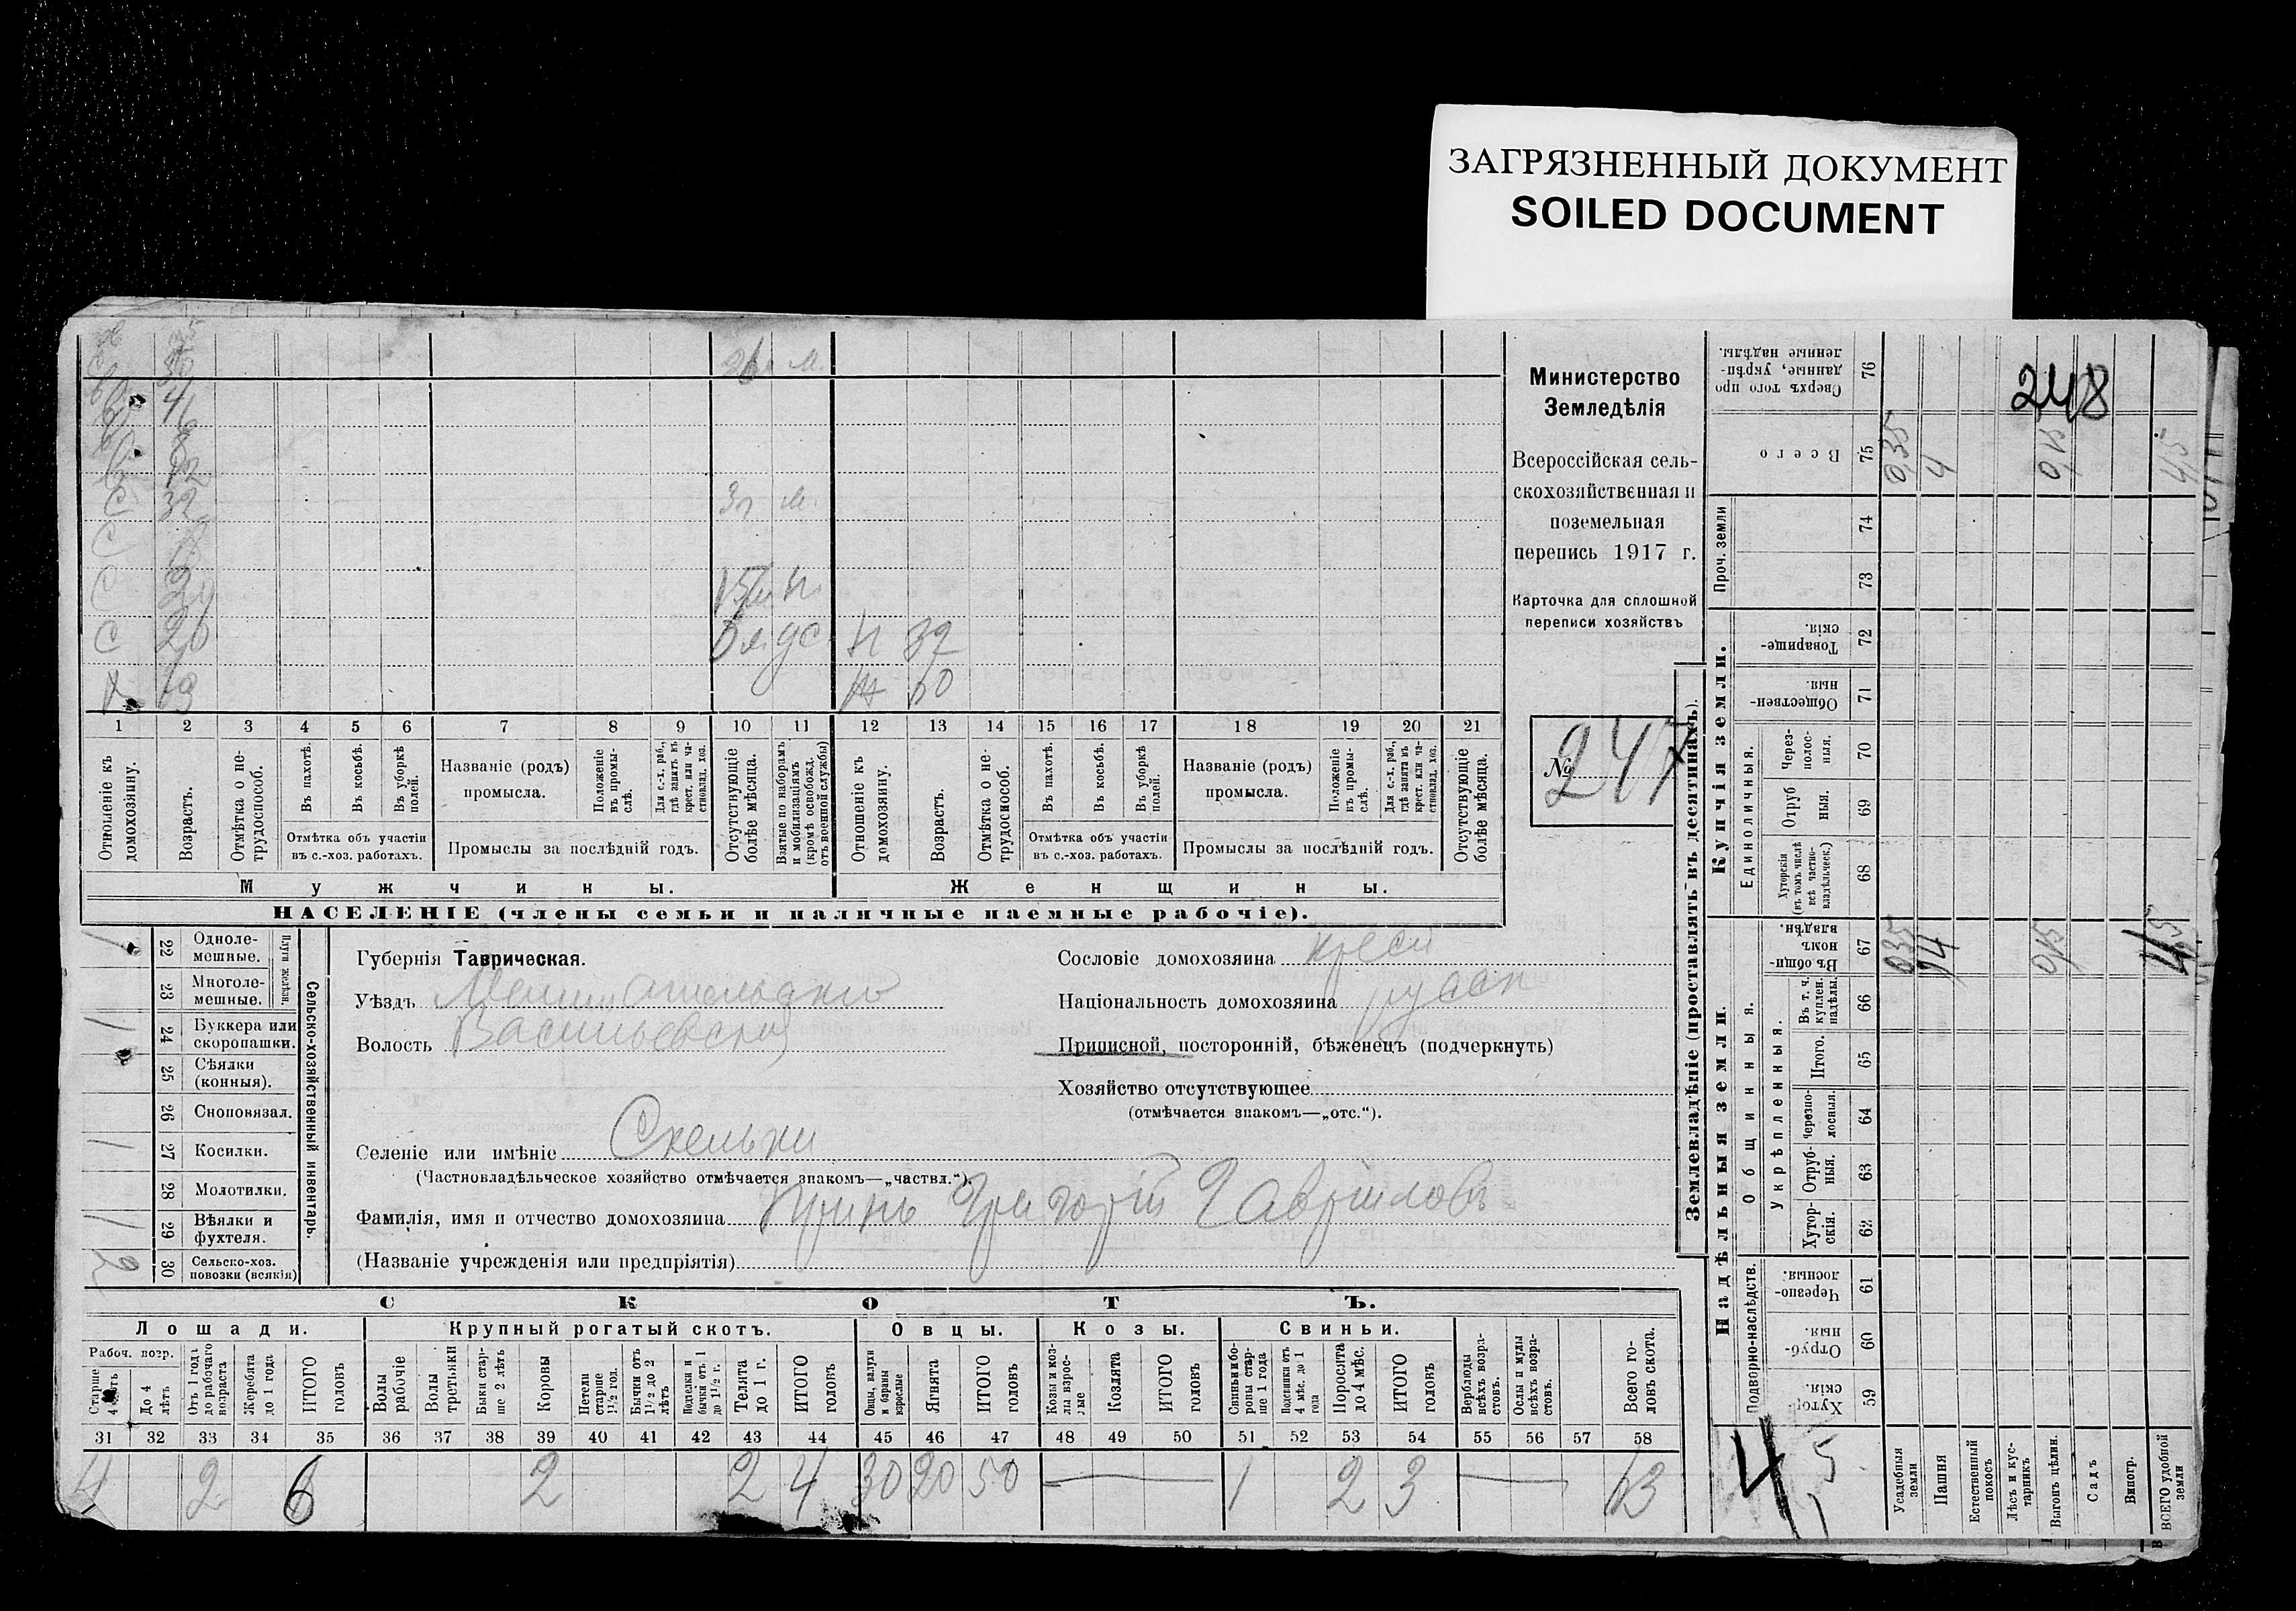 ЗАГРЯЗНЕННЫЙ ДОКУМЕНТ
SOILED DOCUMENT
Министерство
Земледѣлія
Всероссійская сель-
скохозяйственная и
поземельная
перепись 1917 г.
Карточка для сплошной
переписи хозяйствъ
№ 247
248
3г м.
С 26
Н 37
60
1 2 3 4 5 6 7 8 9 10 11 12 13 14 15 16 17 18 19 20 21
Отношеніе къ домохозяину.
Возрастъ.
Отмѣтка о не-трудоспособ.
Въ пахотѣ.
Въ косьбѣ.
Въ уборкѣ полей.
Отмѣтка объ участіи въ с.-хоз. работахъ.
Названіе (родъ) промысла.
Положеніе въ промы-слѣ.
Для с.-х. раб., гдѣ занятъ въ крест. или ча-стновлад. хоз.
Промыслы за послѣдній годъ.
Отсутствующіе болѣе мѣсяца.
Взятые по наборамъ и мобилизаціямъ (кромѣ освобожд. отъ военной службы)
Отношеніе къ домохозяину.
Возрастъ.
Отмѣтка о не-трудоспособ.
Въ пахотѣ.
Въ косьбѣ.
Въ уборкѣ полей.
Отмѣтка объ участіи въ с.-хоз. работахъ.
Названіе (родъ) промысла.
Положеніе въ промы-слѣ.
Для с.-х. раб., гдѣ занята въ крест. или ча-стновлад. хоз.
Промыслы за послѣдній годъ.
Отсутствующіе болѣе мѣсяца.
Мужчины.
Женщины.
НАСЕЛЕНІЕ (члены семьи и наличные наемные рабочіе).
Сельско-хозяйственный инвентарь.
Плуги желѣзн.
22 Одноле-мешные. 1
23 Многоле-мешные.
24 Буккера или скоропашки. 1
25 Сѣялки (конныя).
26 Сноповязал.
27 Косилки. 1
28 Молотилки.
29 Вѣялки и фухтеля. 1
30 Сельско-хоз. повозки (всякія) 2
Губернія Таврическая.
Уѣздъ Мелитопольскій
Волость Васильевская
Селеніе или имѣніе Скельки
(Частновладѣльческое хозяйство отмѣчается знакомъ—„частвл.“).
Фамилія, имя и отчество домохозяина Принь Григорій Гавриловъ
(Названіе учрежденія или предпріятія)
Сословіе домохозяина крест
Національность домохозяина русск
Приписной, посторонній, бѣженецъ (подчеркнуть)
Хозяйство отсутствующее
(отмѣчается знакомъ—„отс.“).
СКОТЪ.
Лошади. Крупный рогатый скотъ. Овцы. Козы. Свиньи.
Рабоч. возр.
Старше 4 лѣтъ
До 4 лѣтъ
Отъ 1 года до рабочаго возраста
Жеребята до 1 года
ИТОГО головъ
Волы рабочіе
Волы третьяки
Быки стар-ше 2 лѣтъ
Коровы
Нетели старше 1½ год.
Бычки отъ 1½ до 2 лѣтъ
Подтелки и бычки отъ 1 до 1½ г.
Телята до 1 г.
ИТОГО головъ
Овцы, валухи и бараны взрослые
Ягнята
ИТОГО головъ
Козы и коз-лы взрос-лые
Козлята
ИТОГО головъ
Свиньи и бо-ровы стар-ше 1 года
Подсвинки отъ 4 мѣс. до 1 года
Поросята до 4 мѣс.
ИТОГО головъ
Верблюды всѣхъ возра-стовъ.
Ослы и мулы всѣхъ возра-стовъ.
Всего го-ловъ скота.
31 32 33 34 35 36 37 38 39 40 41 42 43 44 45 46 47 48 49 50 51 52 53 54 55 56 57 58
4 2 6 2 2 4 30 20 50 1 2 3 63
Землевладѣніе (проставлять въ десятинахъ).
Надѣльныя земли.
Подворно-наслѣдств.
59 Хутор-скія.
60 Отруб-ныя
61 Черезпо-лосныя.
Общинныя.
Укрѣпленныя.
62 Хутор-скія.
63 Отруб-ныя.
64 Черезпо-лосныя.
65 Итого.
66 Въ т. ч. куплен. надѣлы.
67 Въ общи-номъ владѣн.
Купчія земли.
Единоличныя.
68 Хуторскія (въ томъ числѣ всѣ частно-владѣльческ.)
69 Отруб ныя.
70 Через-полос-ныя.
71 Обществен-ныя.
72 Товарище-скія.
Проч. земли
73
74
75 Всего
76 Сверхъ того про данные, укрѣп-ленные надѣлы.
Усадебныя земли 0,35 0,35
Пашня 4 4
Естественный покосъ
Лѣсъ и кус-тарникъ
Выгонъ цѣлин. 0,15 0,15
Садъ
Виногр.
ВСЕГО удобной земли 4,5 4,5
4,5